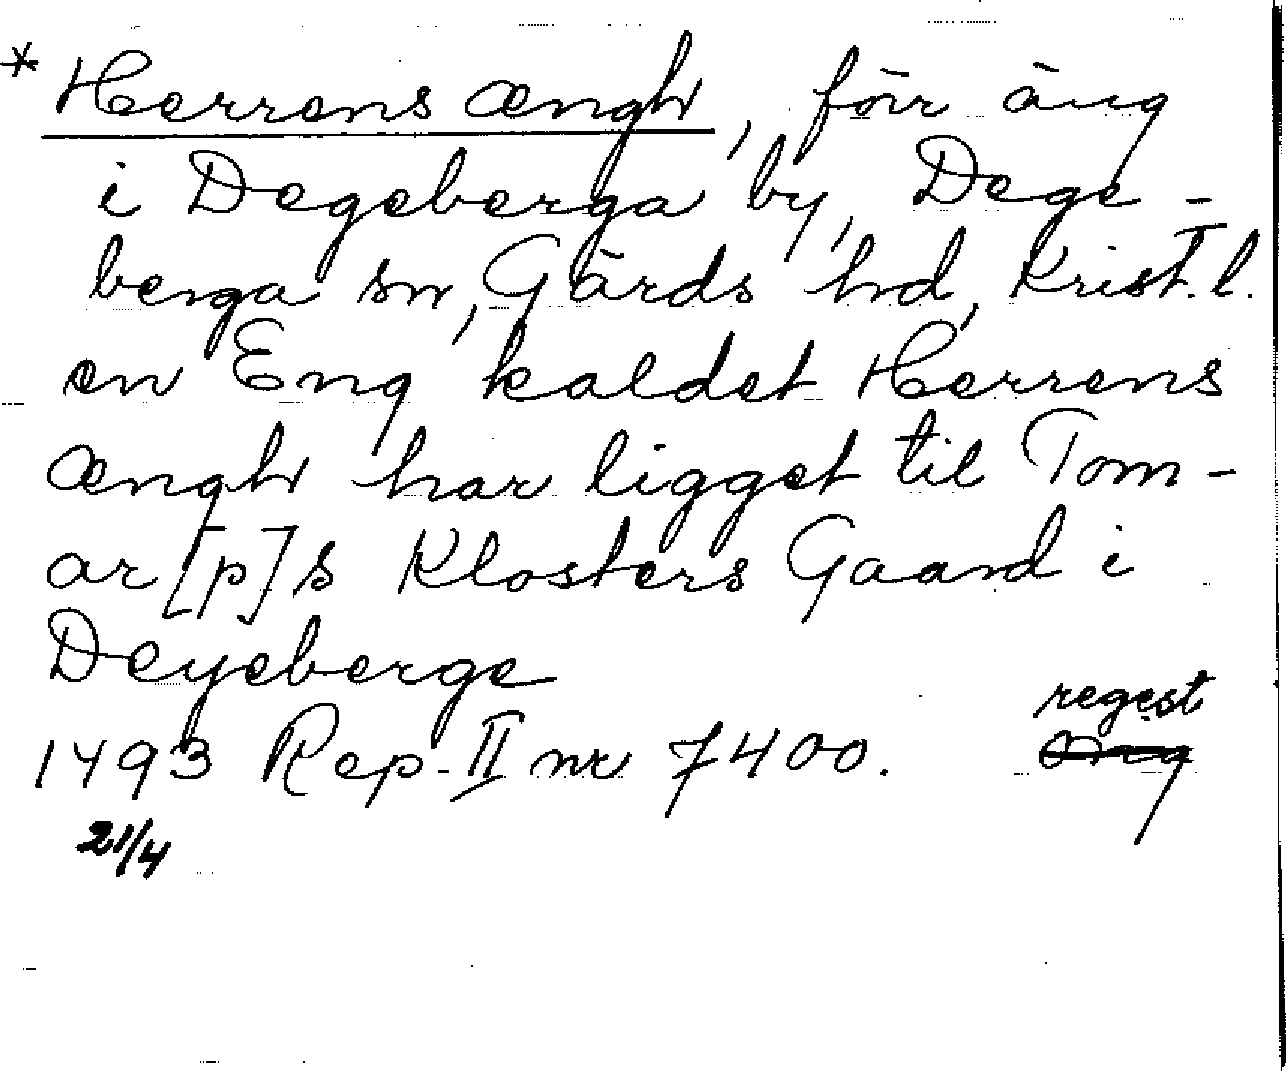 * Herrens ængh, förr äng
i Degeberga by, Dege-
berga sn, Gärds hd, Krist. l.
en Eng kaldet Herrens
ængh har ligget til Tom-
ar[p]s Klosters Gaard i
Deyeberge
regest
1493 Rep. II nr 7400. orig
21/4